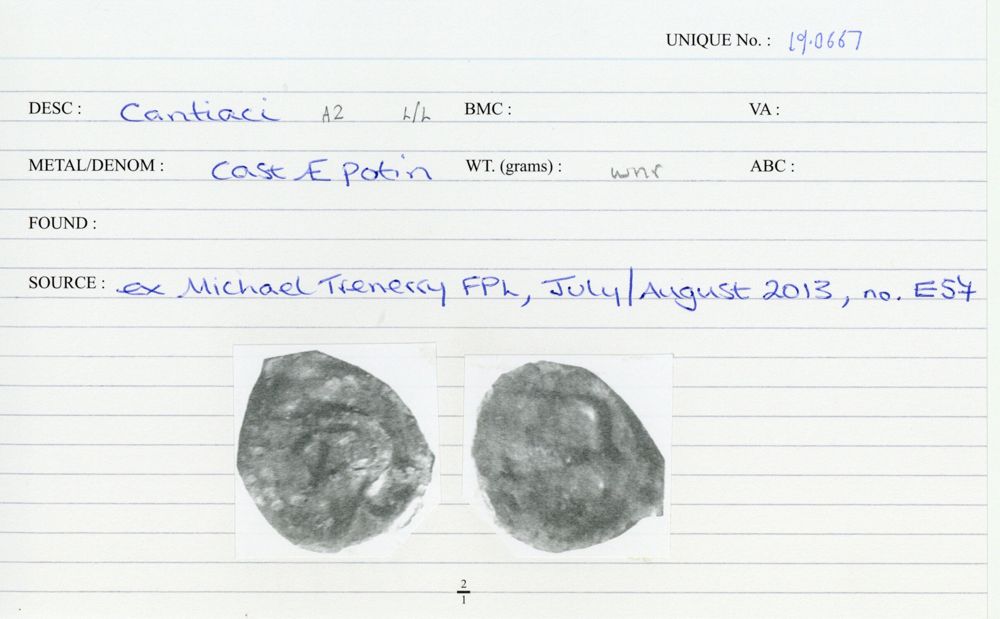 UNIQUE No. : 19.0667
DESC : Cantiaci A2 L/L BMC : VA :
METAL/DENOM : Cast Æ potin WT. (grams) : wnr ABC :
FOUND :
SOURCE : ex Michael Trenerry FPL, July/August 2013, no. E57
2
1